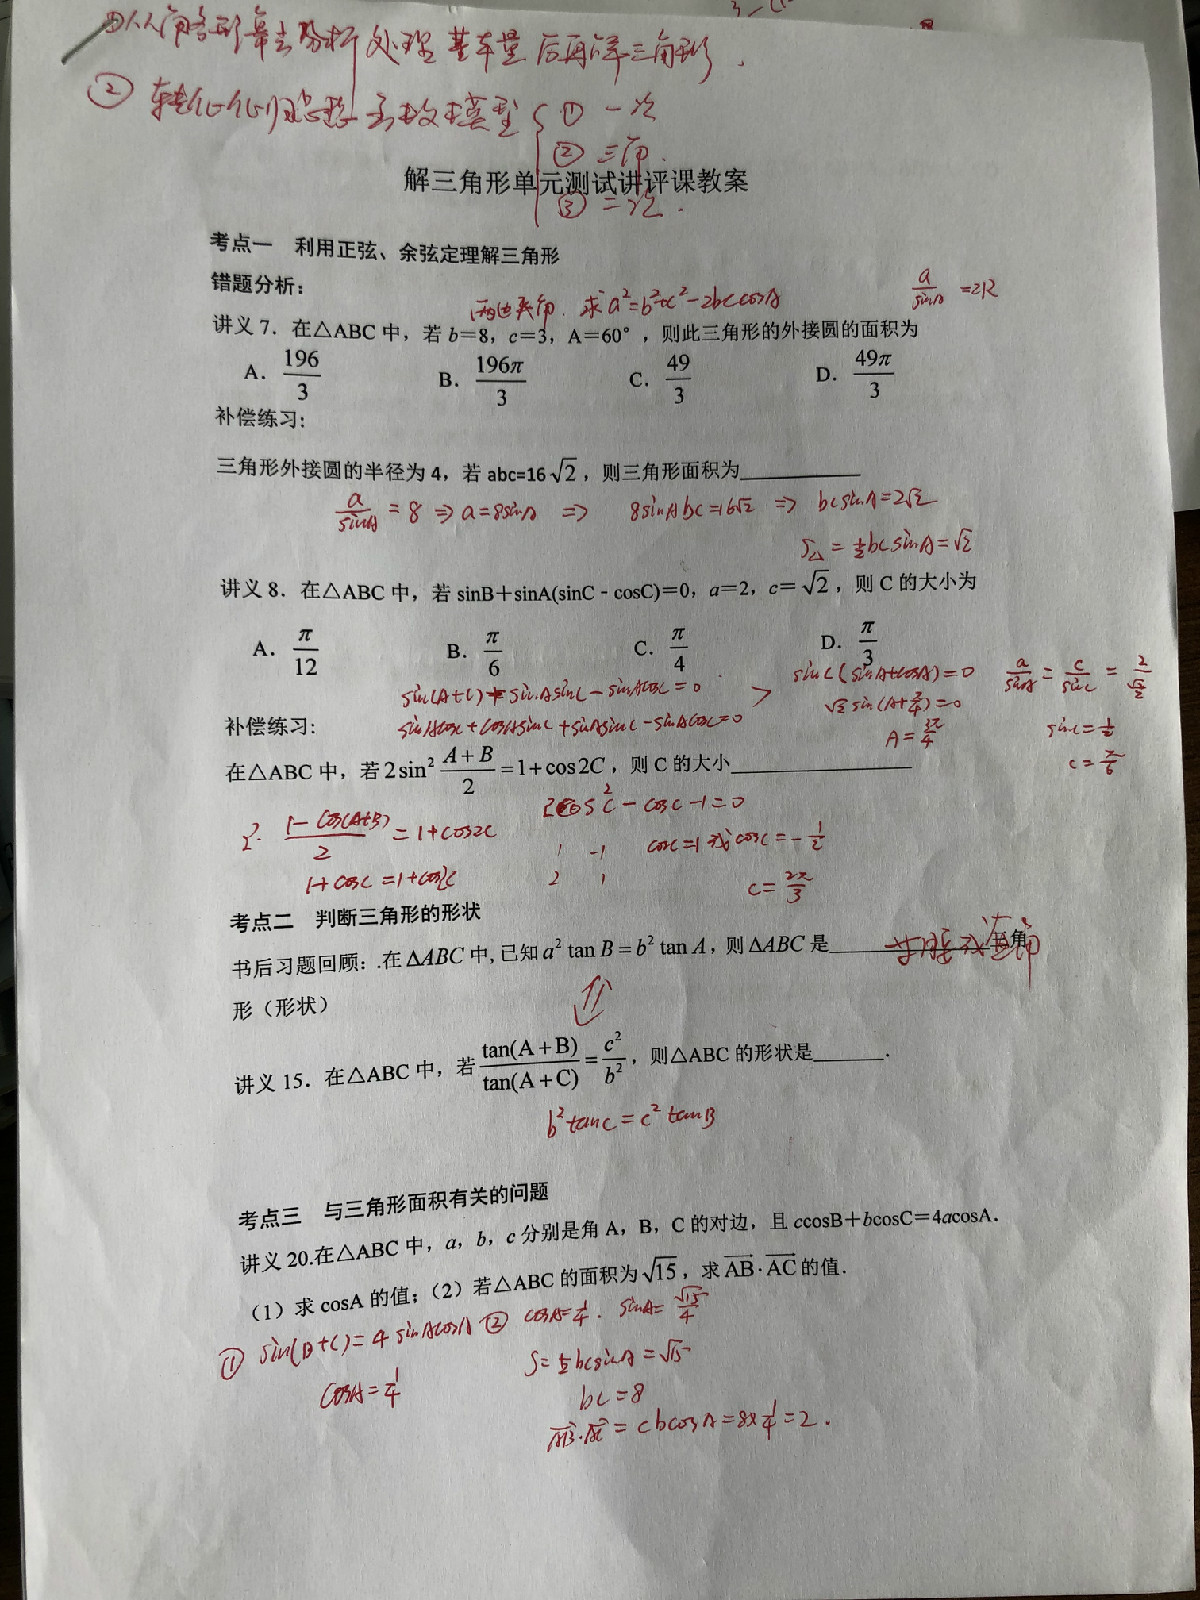 ② 转化化归思想 函数模型 { ① 一次
② 三角.
③ 二次.
解三角形单元测试讲评课教案
考点一 利用正弦、余弦定理解三角形
错题分析：
两边夹角. 求a²=b²+c²-2bc cosA
a/sinA =2R
讲义 7．在△ABC 中，若 b=8，c=3，A=60°，则此三角形的外接圆的面积为
A. 196/3 B. 196π/3 C. 49/3 D. 49π/3
补偿练习:
三角形外接圆的半径为 4，若 abc=16√2，则三角形面积为__________
a/sinA = 8 ⇒ a=8sinA ⇒ 8sinA bc=16√2 ⇒ bcsinA=2√2
S△ = ½bcsinA=√2
讲义 8．在△ABC 中，若 sinB+sinA(sinC - cosC)=0，a=2，c=√2，则 C 的大小为
A. π/12 B. π/6 C. π/4 D. π/3
sin(A+C)+sinAsinC-sinAcosC=0
sinAcosC+cosAsinC+sinAsinC-sinAcosC=0
sinC(sinA+cosA)=0
√2sin(A+π/4)=0
A=3π/4
a/sinA = c/sinC = 2/(√2/2)
sinC=½
C=π/6
补偿练习:
在△ABC 中，若 2sin² (A+B)/2 =1+cos2C，则 C 的大小______________
2· (1-cos(A+B))/2 = 1+cos2C
1+cosC=1+cos2C
2cos²C-cosC-1=0
1 -1
2 1
cosC=1或cosC=-½
C=2π/3
考点二 判断三角形的形状
书后习题回顾：.在ΔABC 中,已知 a² tan B = b² tan A，则 ΔABC 是____________ 等腰或直角
形（形状）
讲义 15．在△ABC 中，若 tan(A+B)/tan(A+C) = c²/b²，则△ABC 的形状是______.
b²tanC=c²tanB
考点三 与三角形面积有关的问题
讲义 20.在△ABC 中，a，b，c 分别是角 A，B，C 的对边，且 ccosB+bcosC=4acosA.
（1）求 cosA 的值；（2）若△ABC 的面积为√15，求AB·AC的值.
① sin(B+C)=4sinAcosA
cosA=¼
② cosA=¼. sinA=√15/4
S=½bcsinA=√15
bc=8
AB·AC=cbcosA=8×¼=2.